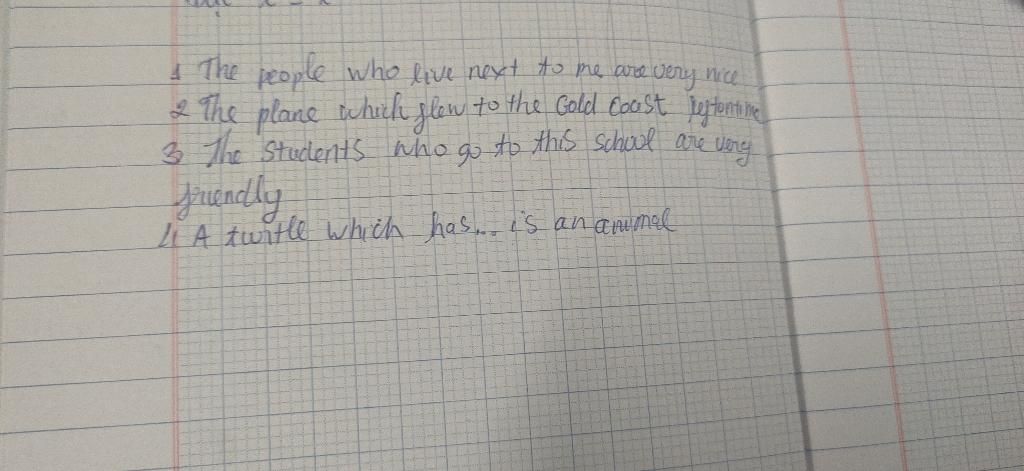 1 The people who live next to me are very nice
2 The plane which flew to the Gold Coast
3 The Students who go to this school are very
friendly
4 A turtle which has... is an animal